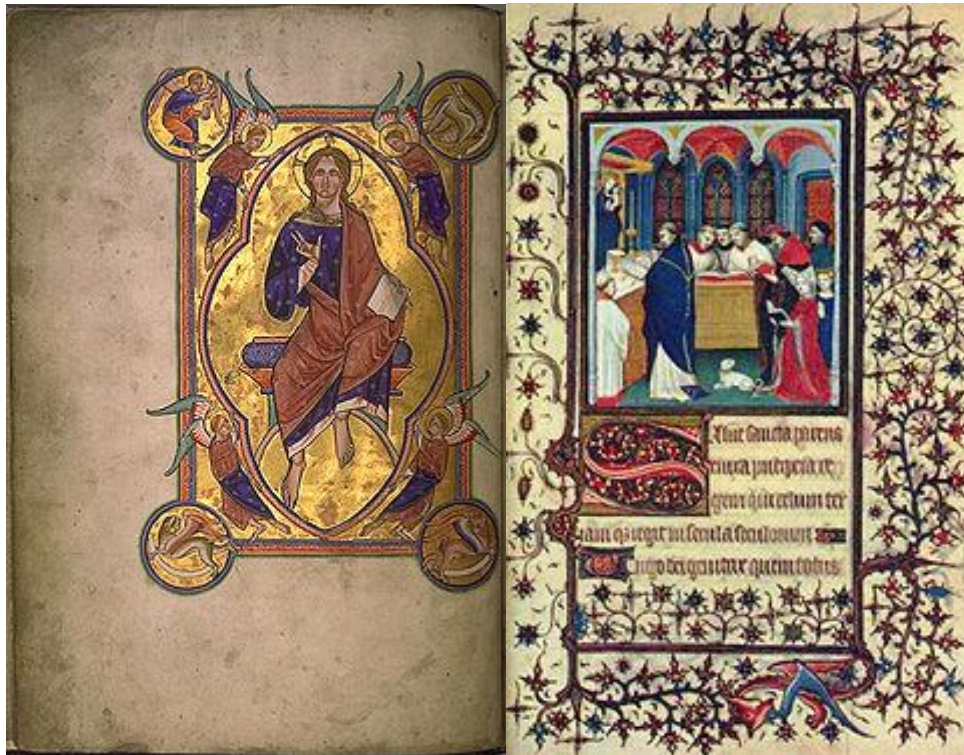 Salue sancta parens
enixa puerpera re
gem qui celum ter
ram q regit in secula seculorum
Uirgo dei genitrix quem totus